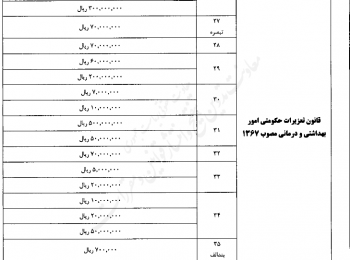 ۳۰۰,۰۰۰,۰۰۰ ریال
۲۷
تبصره
۷۰,۰۰۰,۰۰۰ ریال
۲۸
۷۰,۰۰۰,۰۰۰ ریال
۲۹
۶۰,۰۰۰,۰۰۰ ریال
۲۰۰,۰۰۰,۰۰۰ ریال
۳۰
۷,۰۰۰,۰۰۰ ریال
۱۰,۰۰۰,۰۰۰ ریال
قانون تعزیرات حکومتی امور
بهداشتی و درمانی مصوب ۱۳۶۷
۳۱
۵۰۰,۰۰۰,۰۰۰ ریال
۵۰,۰۰۰,۰۰۰ ریال
۳۲
۷۰,۰۰۰,۰۰۰ ریال
۳۳
۵,۰۰۰,۰۰۰ ریال
۲۰,۰۰۰,۰۰۰ ریال
۳۴
۱۰,۰۰۰,۰۰۰ ریال
۲۰,۰۰۰,۰۰۰ ریال
۵۰,۰۰۰,۰۰۰ ریال
۳۵
بندالف
۷۰۰,۰۰۰ ریال